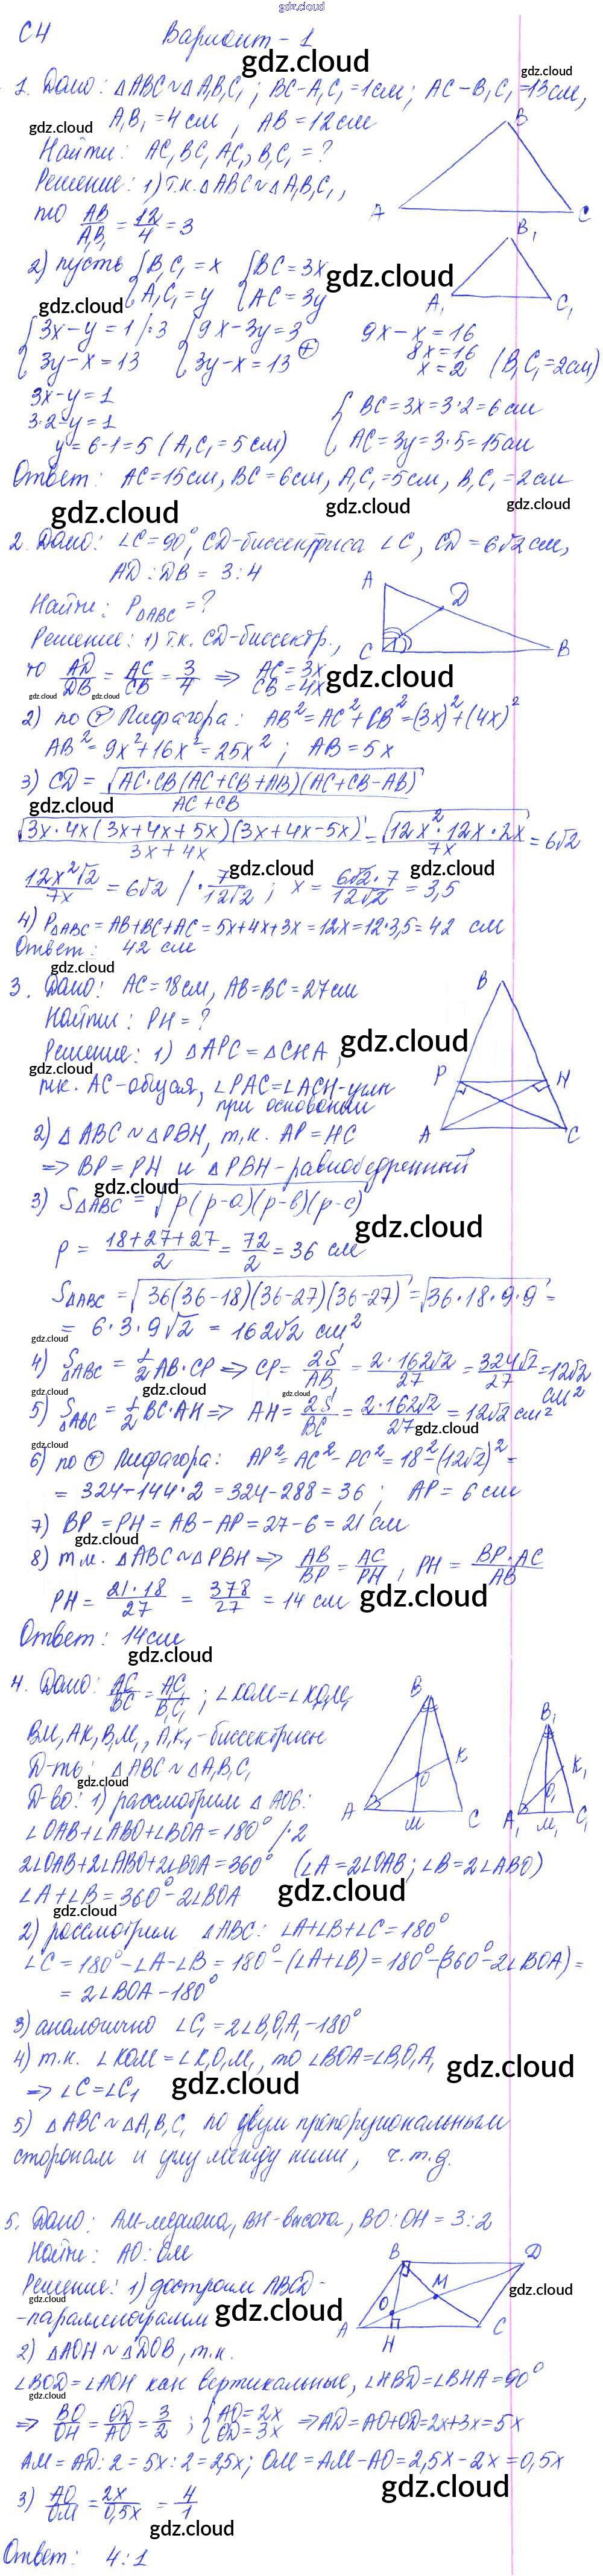 gdz.cloud
С4 Вариант - 1
gdz.cloud
1. Дано: ΔABC ~ ΔA₁B₁C₁; BC - A₁C₁ = 1см; AC - B₁C₁ = 13см,
gdz.cloud
A₁B₁ = 4 см, AB = 12 см
gdz.cloud
Найти: AC, BC, A₁C₁, B₁C₁ = ?
gdz.cloud
Решение: 1) т.к. ΔABC ~ ΔA₁B₁C₁,
то AB/A₁B₁ = 12/4 = 3
A B C
A₁ B₁ C₁
2) пусть { B₁C₁ = x { BC = 3x
{ A₁C₁ = y { AC = 3y
gdz.cloud
gdz.cloud
{ 3x - y = 1 | ·3 { 9x - 3y = 3 9x - x = 16
{ 3y - x = 13 { 3y - x = 13 (+) 8x = 16
x = 2 (B₁C₁ = 2см)
3x - y = 1
3·2 - y = 1 { BC = 3x = 3·2 = 6 см
y = 6 - 1 = 5 (A₁C₁ = 5 см) { AC = 3y = 3·5 = 15 см
gdz.cloud
Ответ: AC = 15см, BC = 6см, A₁C₁ = 5см, B₁C₁ = 2см
gdz.cloud gdz.cloud gdz.cloud
2. Дано: ∠C = 90°, CD - биссектриса ∠C, CD = 6√2 см,
AD : DB = 3 : 4
Найти: PΔABC = ?
gdz.cloud
A D C B
Решение: 1) т.к. CD - биссектр.,
то AD/DB = AC/CB = 3/4 ⇒ AC = 3x
CB = 4x
gdz.cloud
gdz.cloud gdz.cloud
2) по (т) Пифагора: AB² = AC² + CB² = (3x)² + (4x)²
AB² = 9x² + 16x² = 25x²; AB = 5x
3) CD = √(AC·CB(AC+CB+AB)(AC+CB-AB)) / (AC+CB)
gdz.cloud
√(3x·4x(3x+4x+5x)(3x+4x-5x)) / (3x+4x) = √(12x²·12x·2x) / 7x = 6√2
gdz.cloud gdz.cloud
12x²√2/7x = 6√2 | · 7/12√2; x = 6√2·7/12√2 = 3,5
4) PΔABC = AB+BC+AC = 5x+4x+3x = 12x = 12·3,5 = 42 см
Ответ: 42 см
gdz.cloud
3. Дано: AC = 18см, AB = BC = 27см
Найти: PH = ?
gdz.cloud gdz.cloud
Решение: 1) ΔAPC = ΔCHA,
gdz.cloud
т.к. AC - общая, ∠PAC = ∠ACH - углы
при основании
B P H A C
2) ΔABC ~ ΔPBH, т.к. AP = HC
⇒ BP = PH и ΔPBH - равнобедренный
gdz.cloud
3) SΔABC = √(p(p-a)(p-b)(p-c))
gdz.cloud
p = (18+27+27)/2 = 72/2 = 36 см
SΔABC = √(36(36-18)(36-27)(36-27)) = √(36·18·9·9) =
= 6·3·9√2 = 162√2 см²
gdz.cloud
4) SΔABC = 1/2 AB·CP ⇒ CP = 2S/AB = 2·162√2/27 = 324√2/27 = 12√2
см²
gdz.cloud gdz.cloud
5) SΔABC = 1/2 BC·AH ⇒ AH = 2S/BC = 2·162√2/27 = 12√2 см²
gdz.cloud
gdz.cloud
6) по (т) Пифагора: AP² = AC² - PC² = 18² - (12√2)² =
= 324 - 144·2 = 324 - 288 = 36; AP = 6 см
7) BP = PH = AB - AP = 27 - 6 = 21 см
gdz.cloud
8) т.к. ΔABC ~ ΔPBH ⇒ AB/BP = AC/PH, PH = BP·AC/AB
PH = 21·18/27 = 378/27 = 14 см
gdz.cloud
Ответ: 14см
gdz.cloud
4. Дано: AC/BC = A₁C₁/B₁C₁; ∠KOM = ∠K₁O₁M₁
BM, AK, B₁M₁, A₁K₁ - биссектрисы
Д-ть: ΔABC ~ ΔA₁B₁C₁
gdz.cloud
B K O A M C
B₁ K₁ O₁ A₁ M₁ C₁
Д-во: 1) рассмотрим ΔAOB:
∠OAB + ∠ABO + ∠BOA = 180° | ·2
2∠OAB + 2∠ABO + 2∠BOA = 360° (∠A = 2∠OAB; ∠B = 2∠ABO)
∠A + ∠B = 360° - 2∠BOA
gdz.cloud gdz.cloud
2) рассмотрим ΔABC: ∠A + ∠B + ∠C = 180°
∠C = 180° - ∠A - ∠B = 180° - (∠A + ∠B) = 180° - (360° - 2∠BOA) =
= 2∠BOA - 180°
3) аналогично ∠C₁ = 2∠B₁O₁A₁ - 180°
4) т.к. ∠KOM = ∠K₁O₁M₁, то ∠BOA = ∠B₁O₁A₁
gdz.cloud
⇒ ∠C = ∠C₁
gdz.cloud gdz.cloud
5) ΔABC ~ ΔA₁B₁C₁ по двум пропорциональным
сторонам и углу между ними, ч.т.д.
5. Дано: AM - медиана, BH - высота, BO : OH = 3 : 2
Найти: AO : OM
Решение: 1) достроим ABCD -
gdz.cloud gdz.cloud
- параллелограмм
gdz.cloud
B D M O A H C
2) ΔAOH ~ ΔDOB, т.к.
gdz.cloud
∠BOD = ∠AOH как вертикальные, ∠HBD = ∠BHA = 90°
gdz.cloud
⇒ BO/OH = OD/AO = 3/2; { AO = 2x
{ OD = 3x ⇒ AD = AO + OD = 2x + 3x = 5x
AM = AD : 2 = 5x : 2 = 2,5x; OM = AM - AO = 2,5x - 2x = 0,5x
gdz.cloud
3) AO/OM = 2x/0,5x = 4/1
gdz.cloud
Ответ: 4 : 1